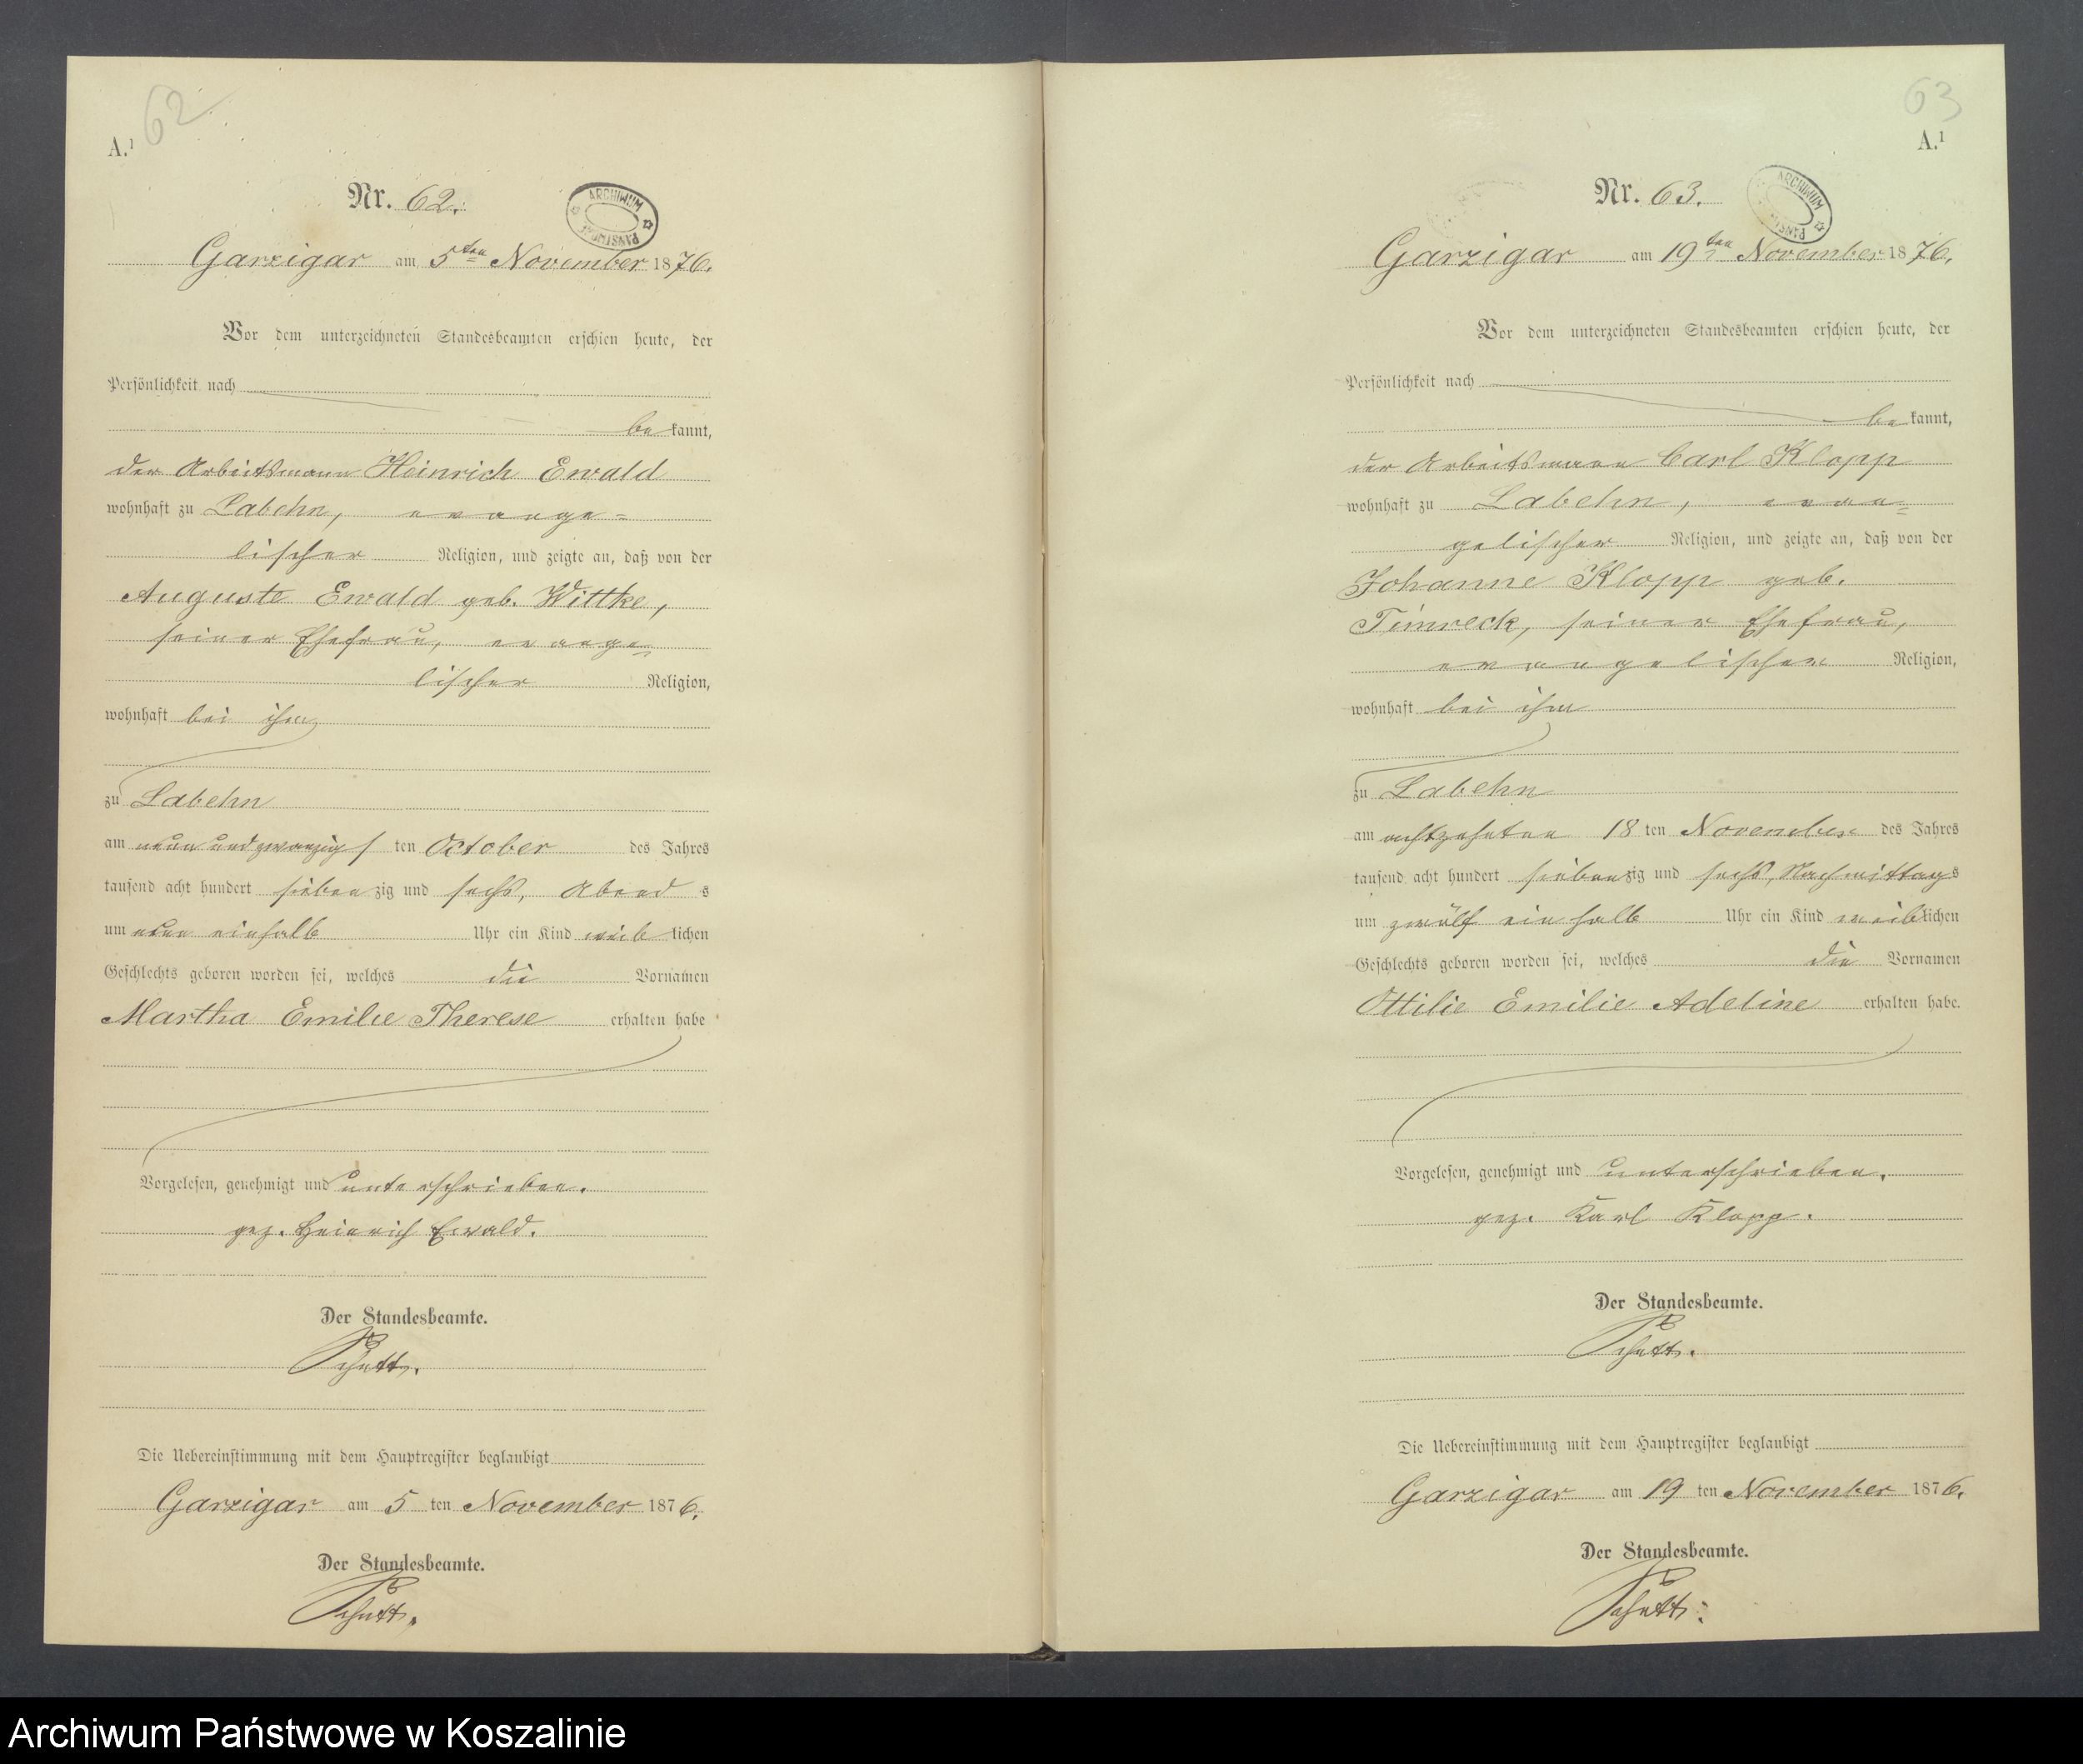 62
A.¹
Nr. 62.
ARCHIWUM PAŃSTWOWE
Garzigar am 5ten November 1876.
Vor dem unterzeichneten Standesbeamten erschien heute, der
Persönlichkeit nach
bekannt,
der Arbeitsmann Heinrich Ewald
wohnhaft zu Labehn, evange=
lischer Religion, und zeigte an, daß von der
Auguste Ewald geb. Wittke,
seiner Ehefrau, evange=
lischer Religion,
wohnhaft bei ihm
zu Labehn
am neun und zwanzig / ten October des Jahres
tausend acht hundert siebenzig und sechs, Abends
um neun einhalb Uhr ein Kind weiblichen
Geschlechts geboren worden sei, welches die Vornamen
Martha Emilie Therese erhalten habe
Vorgelesen, genehmigt und unterschrieben.
gez. Heinrich Ewald.
Der Standesbeamte.
Die Uebereinstimmung mit dem Hauptregister beglaubigt
Garzigar am 5 ten November 1876.
Der Standesbeamte.
63
A.¹
Nr. 63.
ARCHIWUM
Garzigar am 19ten November 1876.
Vor dem unterzeichneten Standesbeamten erschien heute, der
Persönlichkeit nach
bekannt,
der Arbeitsmann Carl Klopp
wohnhaft zu Labehn, evan=
gelischer Religion, und zeigte an, daß von der
Johanne Klopp geb.
Timreck, seiner Ehefrau,
evangelischer Religion,
wohnhaft bei ihm
zu Labehn
am achtzehnten 18 ten November des Jahres
tausend acht hundert siebenzig und sechs, Nachmittags
um zwölf ein halb Uhr ein Kind weiblichen
Geschlechts geboren worden sei, welches die Vornamen
Ottilie Emilie Adeline erhalten habe.
Vorgelesen, genehmigt und unterschrieben.
gez. Karl Klopp.
Der Standesbeamte.
Die Uebereinstimmung mit dem Hauptregister beglaubigt
Garzigar am 19 ten November 1876.
Der Standesbeamte.
Archiwum Państwowe w Koszalinie